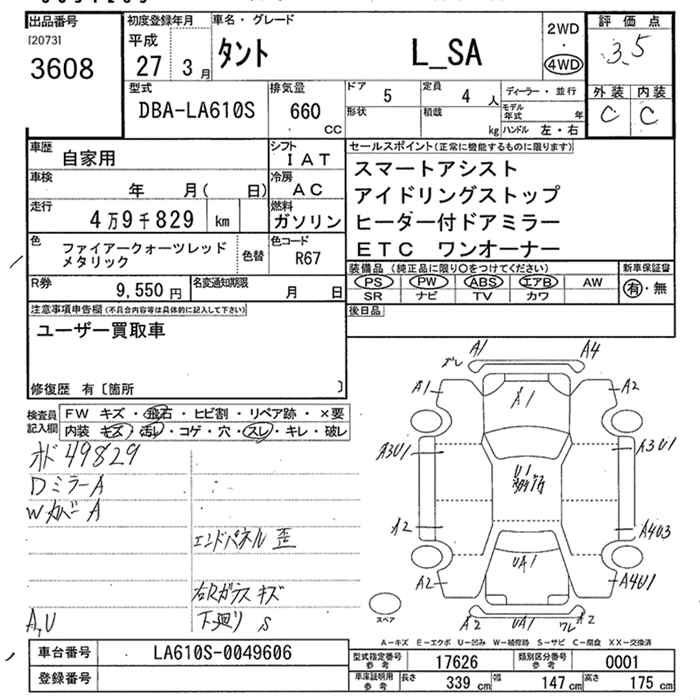 出品番号
[2073]
3608
初度登録年月
平成
27 3月
車名・グレード
タント L_SA
2WD
・
4WD
評価点
3.5
外装 内装
C C
型式
DBA-LA610S
排気量
660
CC
ドア 5
定員 4人
形状
積載 kg
ディーラー・並行
モデル年式 年
ハンドル 左・右
車歴 自家用
シフト IAT
車検 年 月( 日)
冷房 AC
走行 4万9千829 km
燃料 ガソリン
色 ファイアークォーツレッド
メタリック
色替
色コード R67
R券 9,550円
名変通知期限 月 日
セールスポイント(正常に機能するものに限ります)
スマートアシスト
アイドリングストップ
ヒーター付ドアミラー
ETC ワンオーナー
装備品(純正品に限り○をつけてください)
PS PW ABS エアB AW
SR ナビ TV カワ
新車保証書
有・無
後日品
注意事項申告欄(不具合内容等は具体的に記入して下さい)
ユーザー買取車
修復歴 有〔箇所 〕
検査員
記入欄
FW キズ・飛石・ヒビ割・リペア跡・×要
内装 キズ・汚レ・コゲ・穴・スレ・キレ・破レ
オド 49829
Dミラー A
Wカバー A
エンドパネル 歪
右Rガラス キズ
下廻り S
A,U
ズレ A1 A4
A1 A1 A2
A3U1 U1 A3U1
A2 A4U3
A2 UA1 A4U1
A2 UA1 ワレ A2
スペア
A-キズ E-エクボ U-凹み W-補修跡 S-サビ C-腐食 XX-交換済
車台番号 LA610S-0049606
登録番号
型式指定番号
参考
17626
類別区分番号
参考
0001
車庫証明用
参考
長さ 339cm 幅 147cm 高さ 175cm